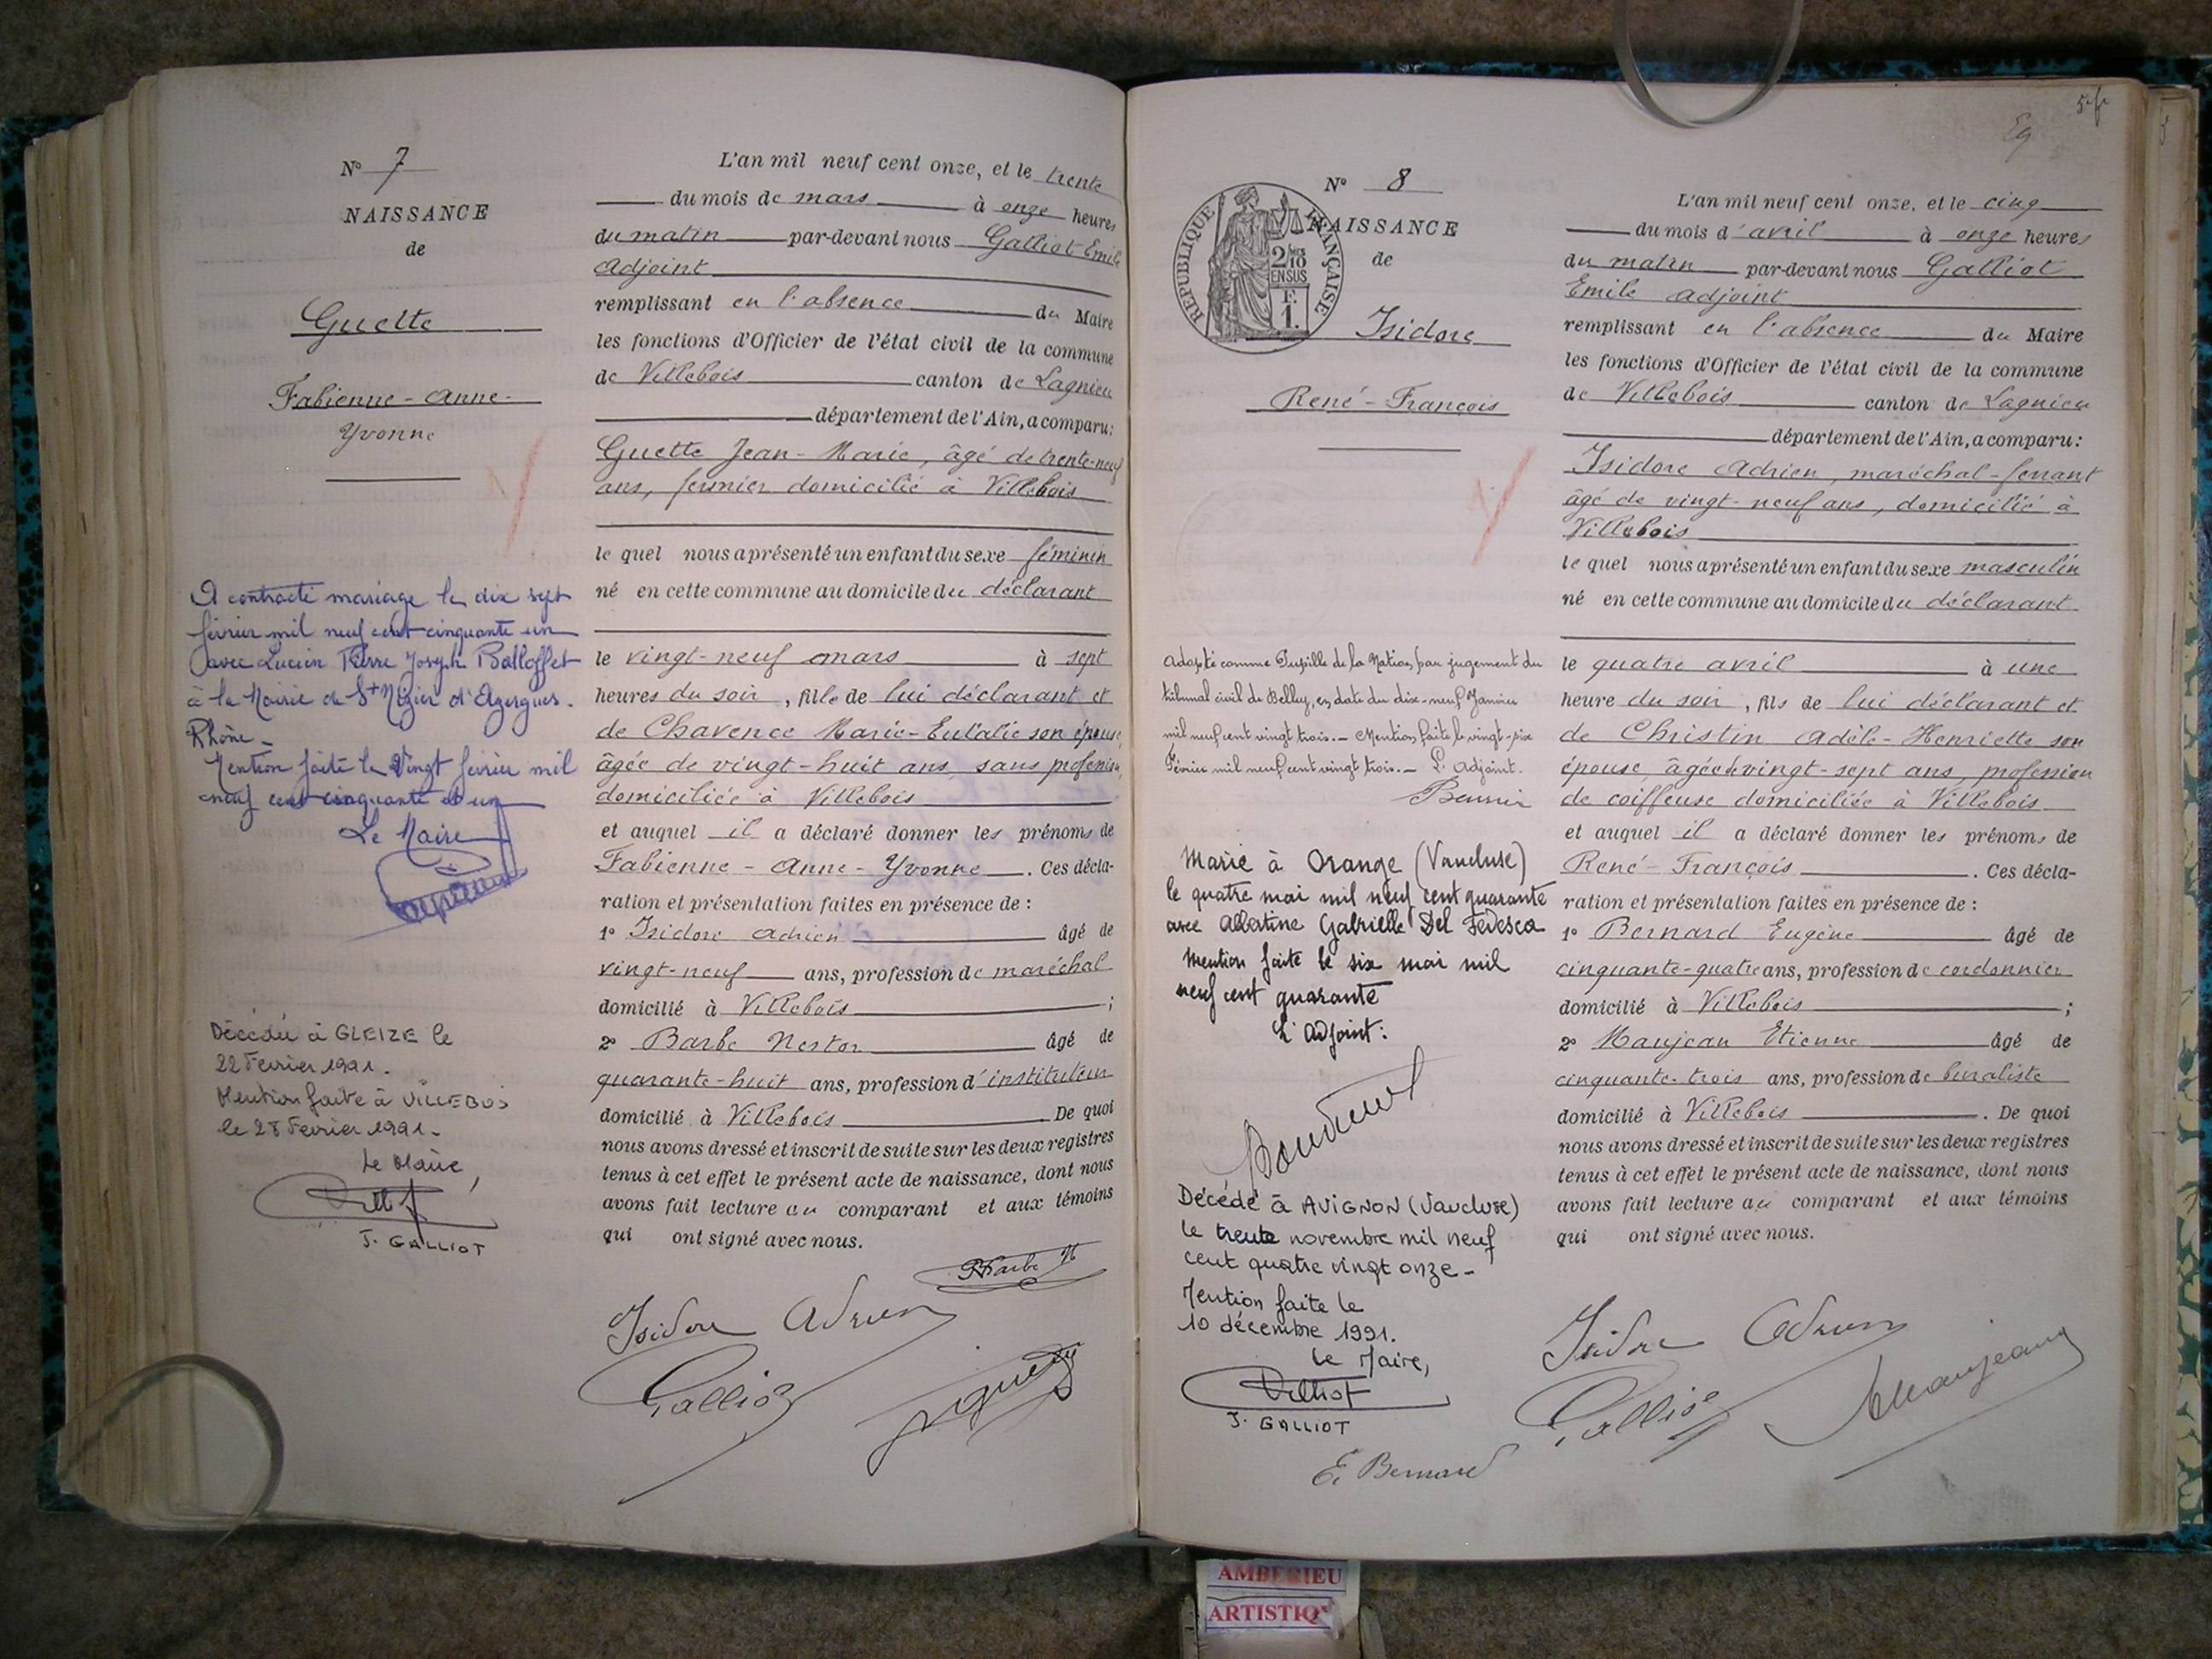 N° 7
NAISSANCE
de
Guette
Fabienne - Anne -
Yvonne
A contracté mariage le dix sept
février mil neuf cent cinquante un
avec Lucien Pierre Joseph Balloffet
à la Mairie de St Nizier d'Azergues.
Rhône -
Mention faite le Vingt février mil
neuf cent cinquante et un
Le Maire
Décédée à GLEIZE le
22 Fevrier 1991.
Mention faite à VILLEBOIS
le 28 Fevrier 1991.
Le Maire,
J. GALLIOT
L'an mil neuf cent onze, et le trente
du mois de mars à onze heures
du matin par-devant nous Galliot Emile
Adjoint
remplissant en l'absence du Maire
les fonctions d'Officier de l'état civil de la commune
de Villebois canton de Lagnieu
département de l'Ain, a comparu:
Guette Jean - Marie, âgé de trente-neuf
ans, fermier domicilié à Villebois
le quel nous a présenté un enfant du sexe féminin
né en cette commune au domicile du déclarant
le vingt-neuf mars à sept
heures du soir, fille de lui déclarant et
de Chavence Marie-Eulalie son épouse,
âgée de vingt-huit ans, sans profession,
domiciliée à Villebois
et auquel il a déclaré donner les prénoms de
Fabienne - Anne - Yvonne. Ces décla-
ration et présentation faites en présence de :
1° Isidore Adrien âgé de
vingt-neuf ans, profession de maréchal
domicilié à Villebois ;
2° Barbe Nestor âgé de
quarante-huit ans, profession d'instituteur
domicilié à Villebois De quoi
nous avons dressé et inscrit de suite sur les deux registres
tenus à cet effet le présent acte de naissance, dont nous
avons fait lecture au comparant et aux témoins
qui ont signé avec nous.
Barbe N
Isidore Adrien
Galliot
Guette
5e f
N° 8
NAISSANCE
de
RÉPUBLIQUE FRANÇAISE
2/10
EN SUS
F.
1.
Isidore
René - François
Adopté comme Pupille de la Nation, par jugement du
tribunal civil de Belley, en date du dix-neuf Janvier
mil neuf cent vingt trois. - Mention faite le vingt-six
Février mil neuf cent vingt trois. - L'adjoint.
Marié à Orange (Vaucluse)
le quatre mai mil neuf cent quarante
avec Albertine Gabrielle Del Fedesca
Mention faite le six mai mil
neuf cent quarante
L'Adjoint:
Décédé à AVIGNON (Vaucluse)
le trente novembre mil neuf
cent quatre vingt onze -
Mention faite le
10 décembre 1991.
Le Maire,
J. GALLIOT
L'an mil neuf cent onze, et le cinq
du mois d'avril à onze heures
du matin par-devant nous Galliot
Emile Adjoint
remplissant en l'absence du Maire
les fonctions d'Officier de l'état civil de la commune
de Villebois canton de Lagnieu
département de l'Ain, a comparu:
Isidore Adrien, maréchal-ferrant
âgé de vingt-neuf ans, domicilié à
Villebois
le quel nous a présenté un enfant du sexe masculin
né en cette commune au domicile du déclarant
le quatre avril à une
heure du soir, fils de lui déclarant et
de Christin Adèle-Henriette son
épouse, âgée de vingt-sept ans, profession
de coiffeuse domiciliée à Villebois
et auquel il a déclaré donner les prénoms de
René-François. Ces décla-
ration et présentation faites en présence de :
1° Bernard Eugène âgé de
cinquante-quatre ans, profession de cordonnier
domicilié à Villebois ;
2° Maujean Etienne âgé de
cinquante-trois ans, profession de buraliste
domicilié à Villebois. De quoi
nous avons dressé et inscrit de suite sur les deux registres
tenus à cet effet le présent acte de naissance, dont nous
avons fait lecture au comparant et aux témoins
qui ont signé avec nous.
Isidore Adrien
Galliot
Maujean
E. Bernard
AMBERIEU
ARTISTIQ